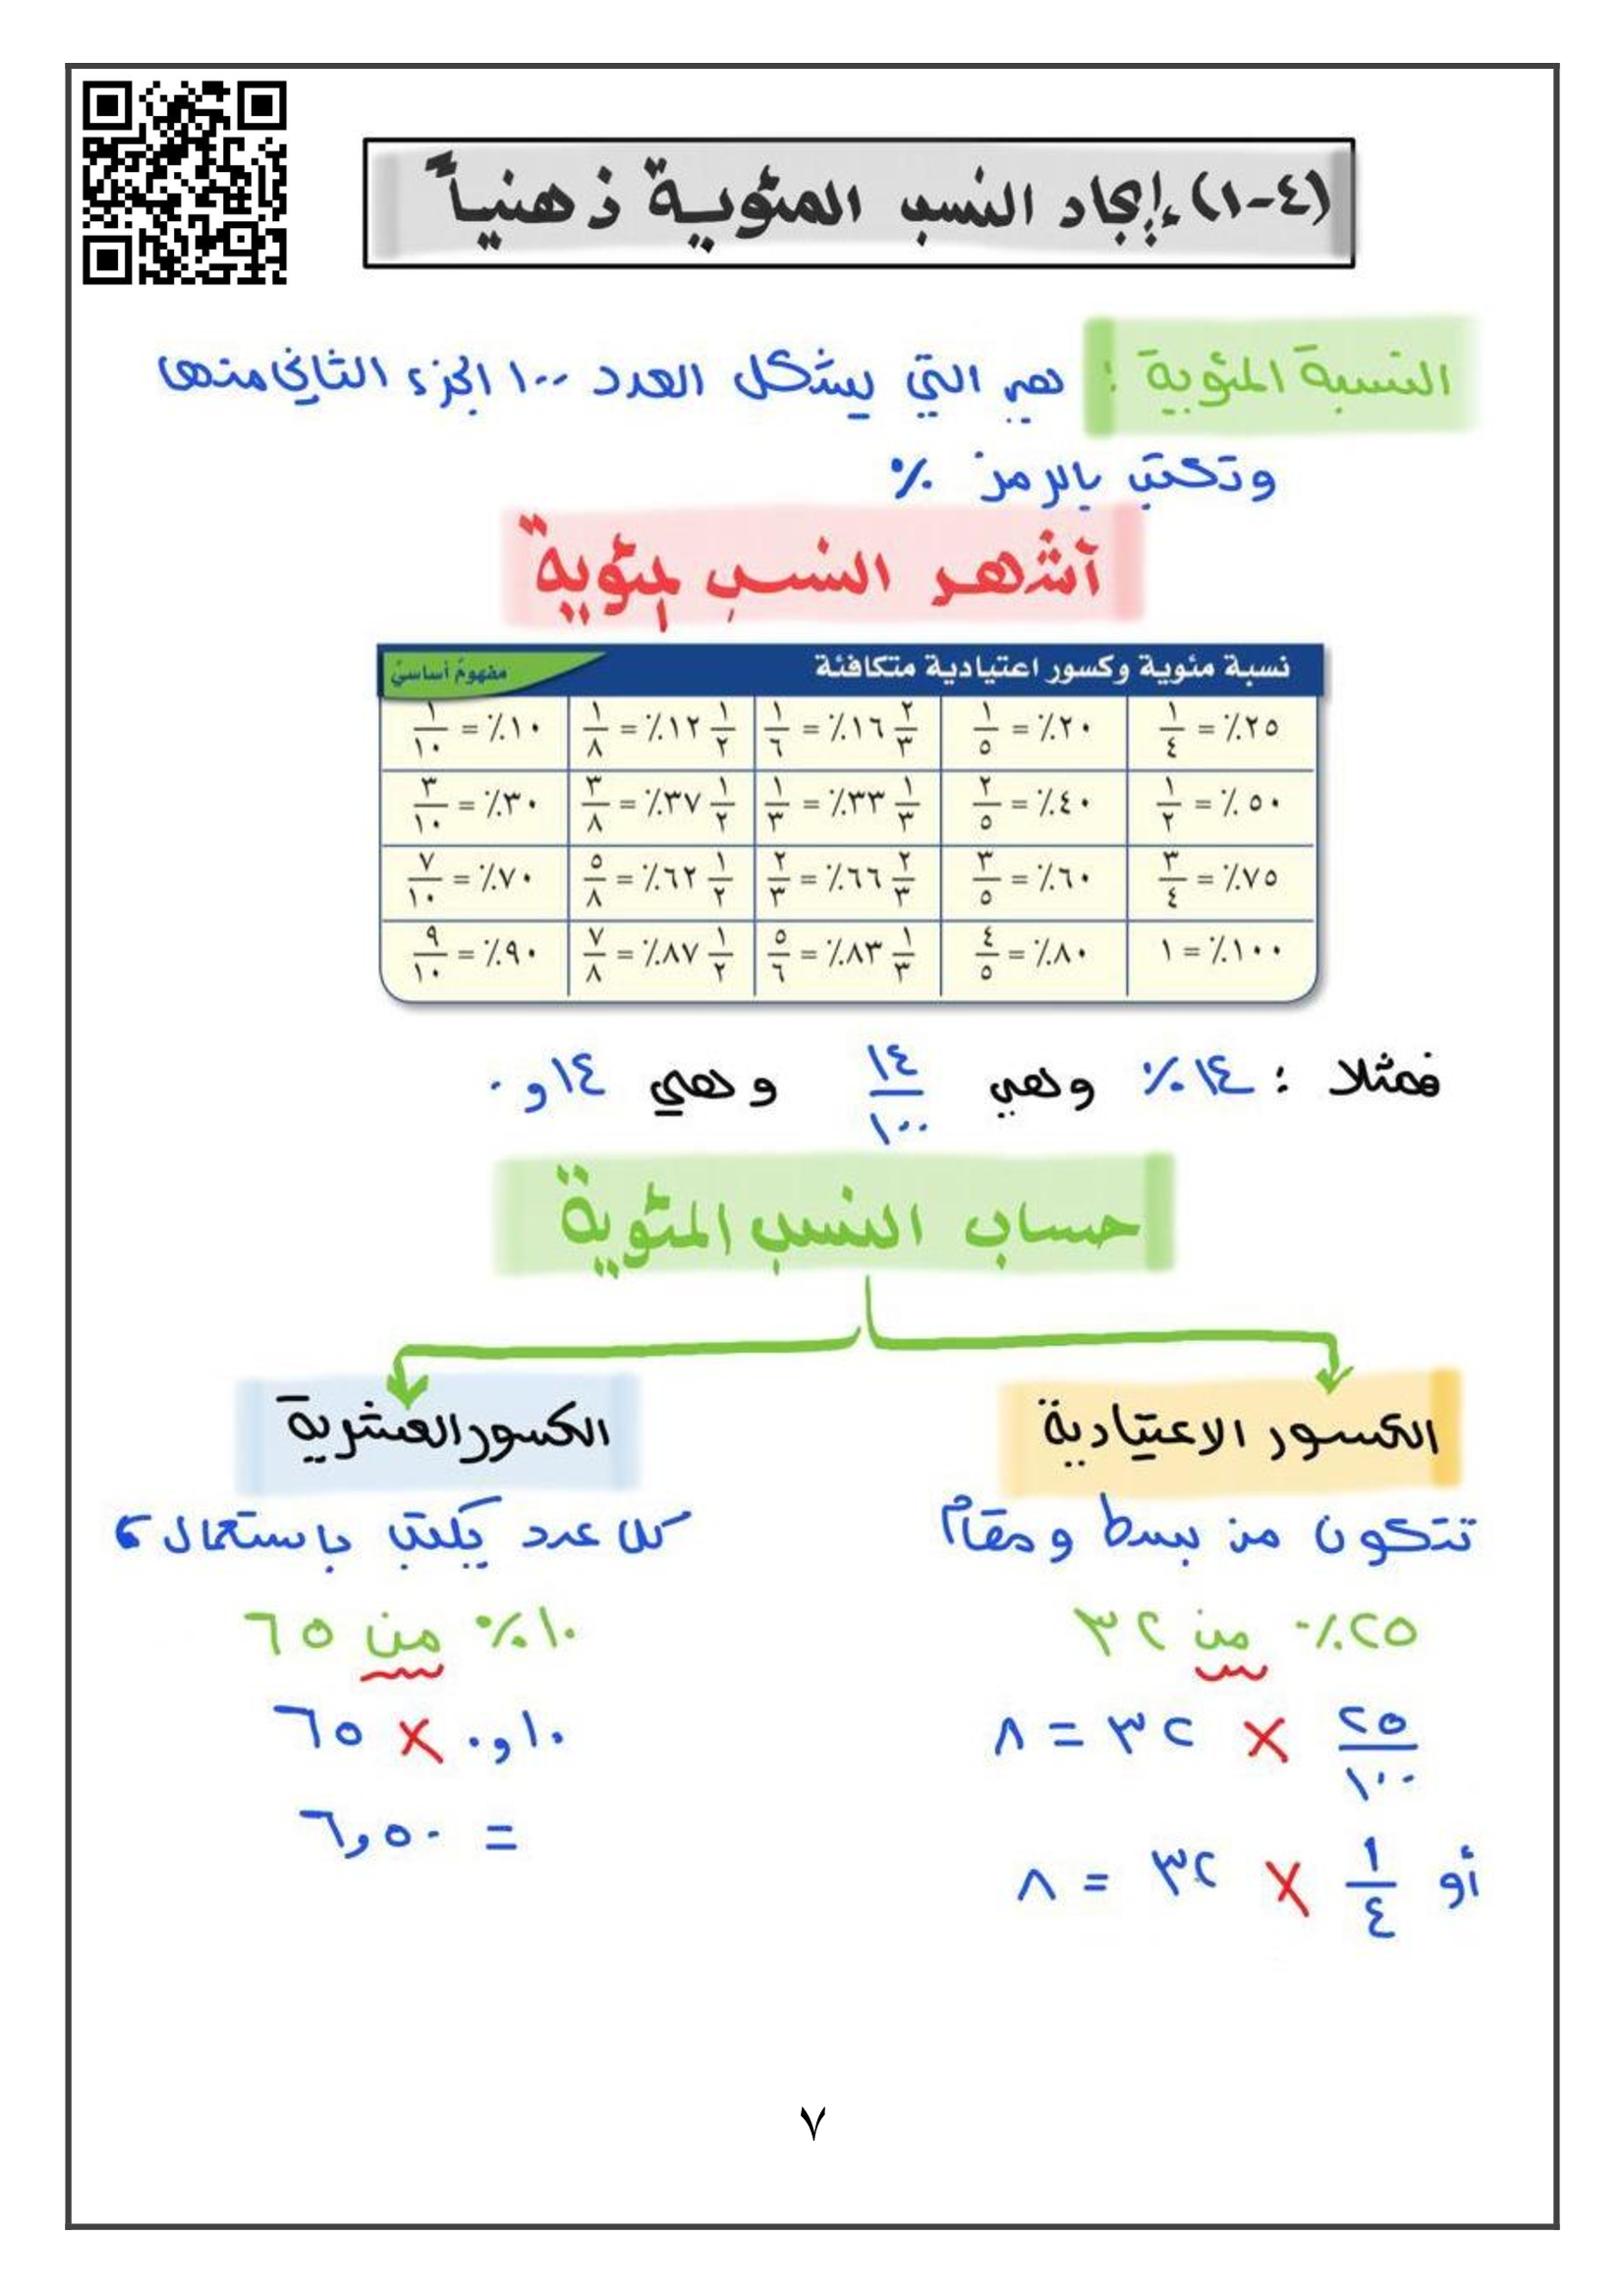 (٤-١) إيجاد النسب المئوية ذهنياً
النسبة المئوية : هي التي يشكل العدد ١٠٠ الجزء الثاني منها
وتكتب بالرمز ٪
آشهر النسب المئوية
نسبة مئوية وكسور اعتيادية متكافئة مفهوم أساسي
٢٥٪ = ١/٤ ٢٠٪ = ١/٥ ١٦ ٢/٣٪ = ١/٦ ١٢ ١/٢٪ = ١/٨ ١٠٪ = ١/١٠
٥٠٪ = ١/٢ ٤٠٪ = ٢/٥ ٣٣ ١/٣٪ = ١/٣ ٣٧ ١/٢٪ = ٣/٨ ٣٠٪ = ٣/١٠
٧٥٪ = ٣/٤ ٦٠٪ = ٣/٥ ٦٦ ٢/٣٪ = ٢/٣ ٦٢ ١/٢٪ = ٥/٨ ٧٠٪ = ٧/١٠
١٠٠٪ = ١ ٨٠٪ = ٤/٥ ٨٣ ١/٣٪ = ٥/٦ ٨٧ ١/٢٪ = ٧/٨ ٩٠٪ = ٩/١٠
فمثلا : ١٤٪ وهي ١٤/١٠٠ وهي ٠,١٤
حساب النسب المئوية
الكسور الاعتيادية
تتكون من بسط ومقام
٢٥٪ من ٣٢
٢٥/١٠٠ × ٣٢ = ٨
أو ١/٤ × ٣٢ = ٨
الكسور العشرية
كل عدد يكتب باستعمال ,
١٠٪ من ٦٥
٠,١٠ × ٦٥
= ٦,٥٠
٧